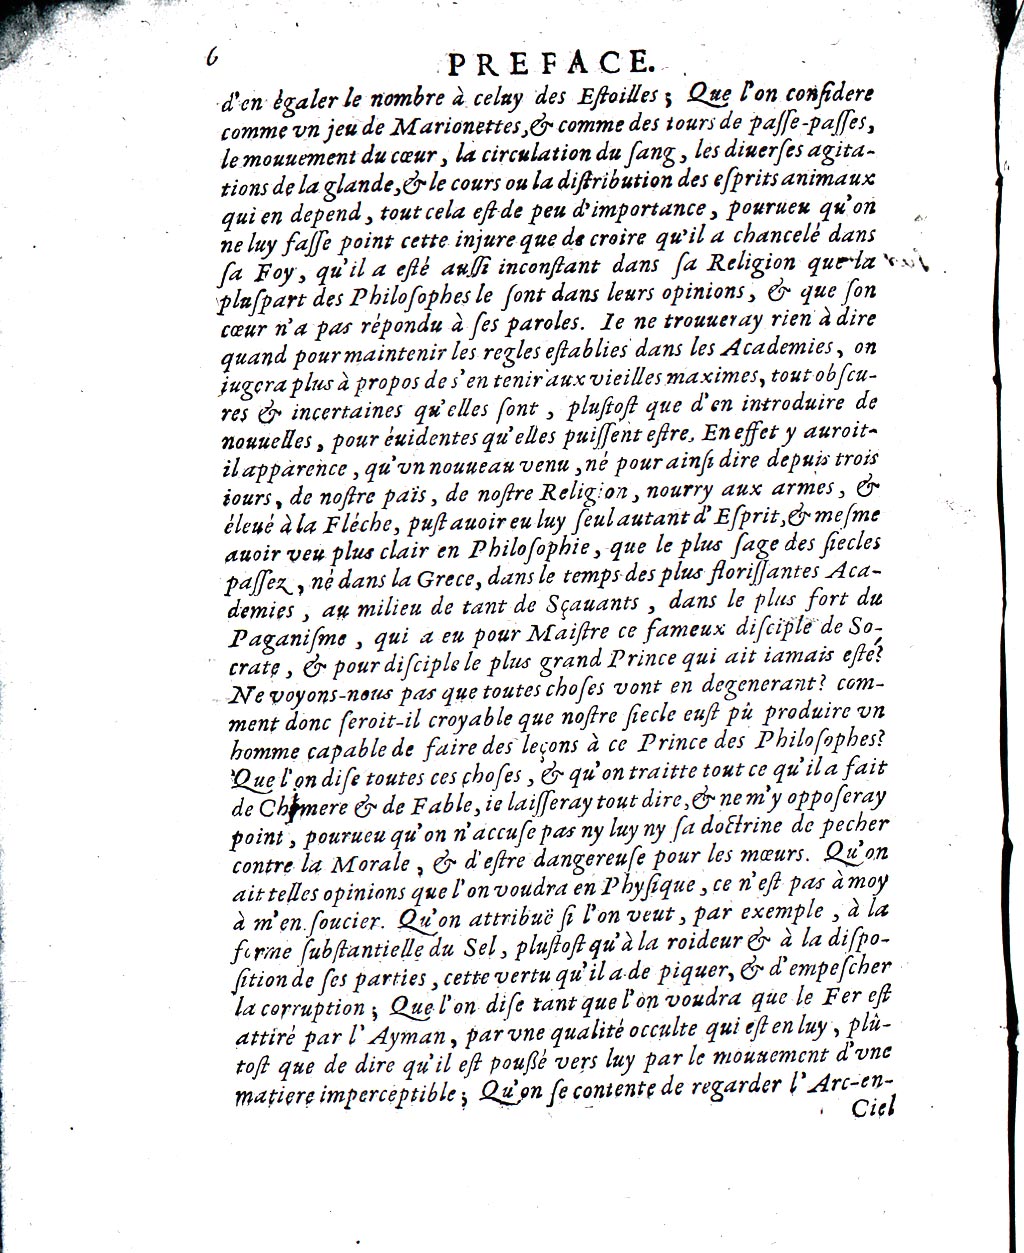 6
PREFACE.
d'en égaler le nombre à celuy des Eſtoilles ; Que l'on conſidere
comme vn jeu de Marionettes, & comme des tours de paſſe-paſſes,
le mouuement du cœur, la circulation du ſang, les diuerſes agita-
tions de la glande, & le cours ou la diſtribution des eſprits animaux
qui en depend, tout cela eſt de peu d'importance, pourueu qu'on
ne luy faſſe point cette injure que de croire qu'il a chancelé dans
ſa Foy, qu'il a eſté auſſi inconſtant dans ſa Religion que la
pluſpart des Philoſophes le ſont dans leurs opinions, & que ſon
cœur n'a pas répondu à ſes paroles. Ie ne trouueray rien à dire
quand pour maintenir les regles eſtablies dans les Academies, on
jugera plus à propos de s'en tenir aux vieilles maximes, tout obſcu-
res & incertaines qu'elles ſont, pluſtoſt que d'en introduire de
nouuelles, pour éuidentes qu'elles puiſſent eſtre. En effet y auroit-
il apparence, qu'vn nouueau venu, né pour ainſi dire depuis trois
iours, de noſtre païs, de noſtre Religion, nourry aux armes, &
éleué à la Fléche, puſt auoir eu luy ſeul autant d'Eſprit, & meſme
auoir veu plus clair en Philoſophie, que le plus ſage des ſiecles
paſſez, né dans la Grece, dans le temps des plus floriſſantes Aca-
demies, au milieu de tant de Sçauants, dans le plus fort du
Paganiſme, qui a eu pour Maiſtre ce fameux diſciple de So-
crate, & pour diſciple le plus grand Prince qui ait iamais eſté?
Ne voyons-nous pas que toutes choſes vont en degenerant? com-
ment donc ſeroit-il croyable que noſtre ſiecle euſt pû produire vn
homme capable de faire des leçons à ce Prince des Philoſophes?
Que l'on diſe toutes ces choſes, & qu'on traitte tout ce qu'il a fait
de Chymere & de Fable, ie laiſſeray tout dire, & ne m'y oppoſeray
point, pourueu qu'on n'accuſe pas ny luy ny ſa doctrine de pecher
contre la Morale, & d'eſtre dangereuſe pour les mœurs. Qu'on
ait telles opinions que l'on voudra en Phyſique, ce n'eſt pas à moy
à m'en ſoucier. Qu'on attribuë ſi l'on veut, par exemple, à la
forme ſubſtantielle du Sel, pluſtoſt qu'à la roideur & à la diſpo-
ſition de ſes parties, cette vertu qu'il a de piquer, & d'empeſcher
la corruption ; Que l'on diſe tant que l'on voudra que le Fer eſt
attiré par l'Ayman, par vne qualité occulte qui eſt en luy, plû-
toſt que de dire qu'il eſt pouſſé vers luy par le mouuement d'vne
matiere imperceptible ; Qu'on ſe contente de regarder l'Arc-en-
Ciel